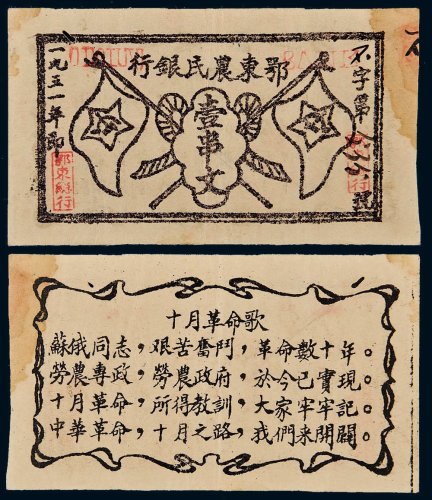 鄂東農民銀行
不字第
號
壹串文
一九三一年印
鄂東銀行
十月革命歌
蘇俄同志,艱苦奮鬥,革命數十年。
勞農專政,勞農政府,於今已實現。
十月革命,所得教訓,大家牢牢記。
中華革命,十月之路,我們來開闢。